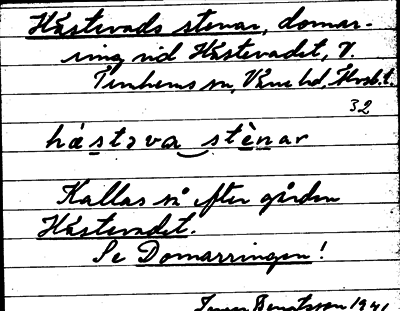 Hästevads stenar, domar-
ring vid Hästevadet, V.
Tunhems sn, Väne hd, Älvsb.l.
32
hàstəva stènar
Kallas så efter gården
Hästevadet.
Se Domarringen!
Bengtsson 1941